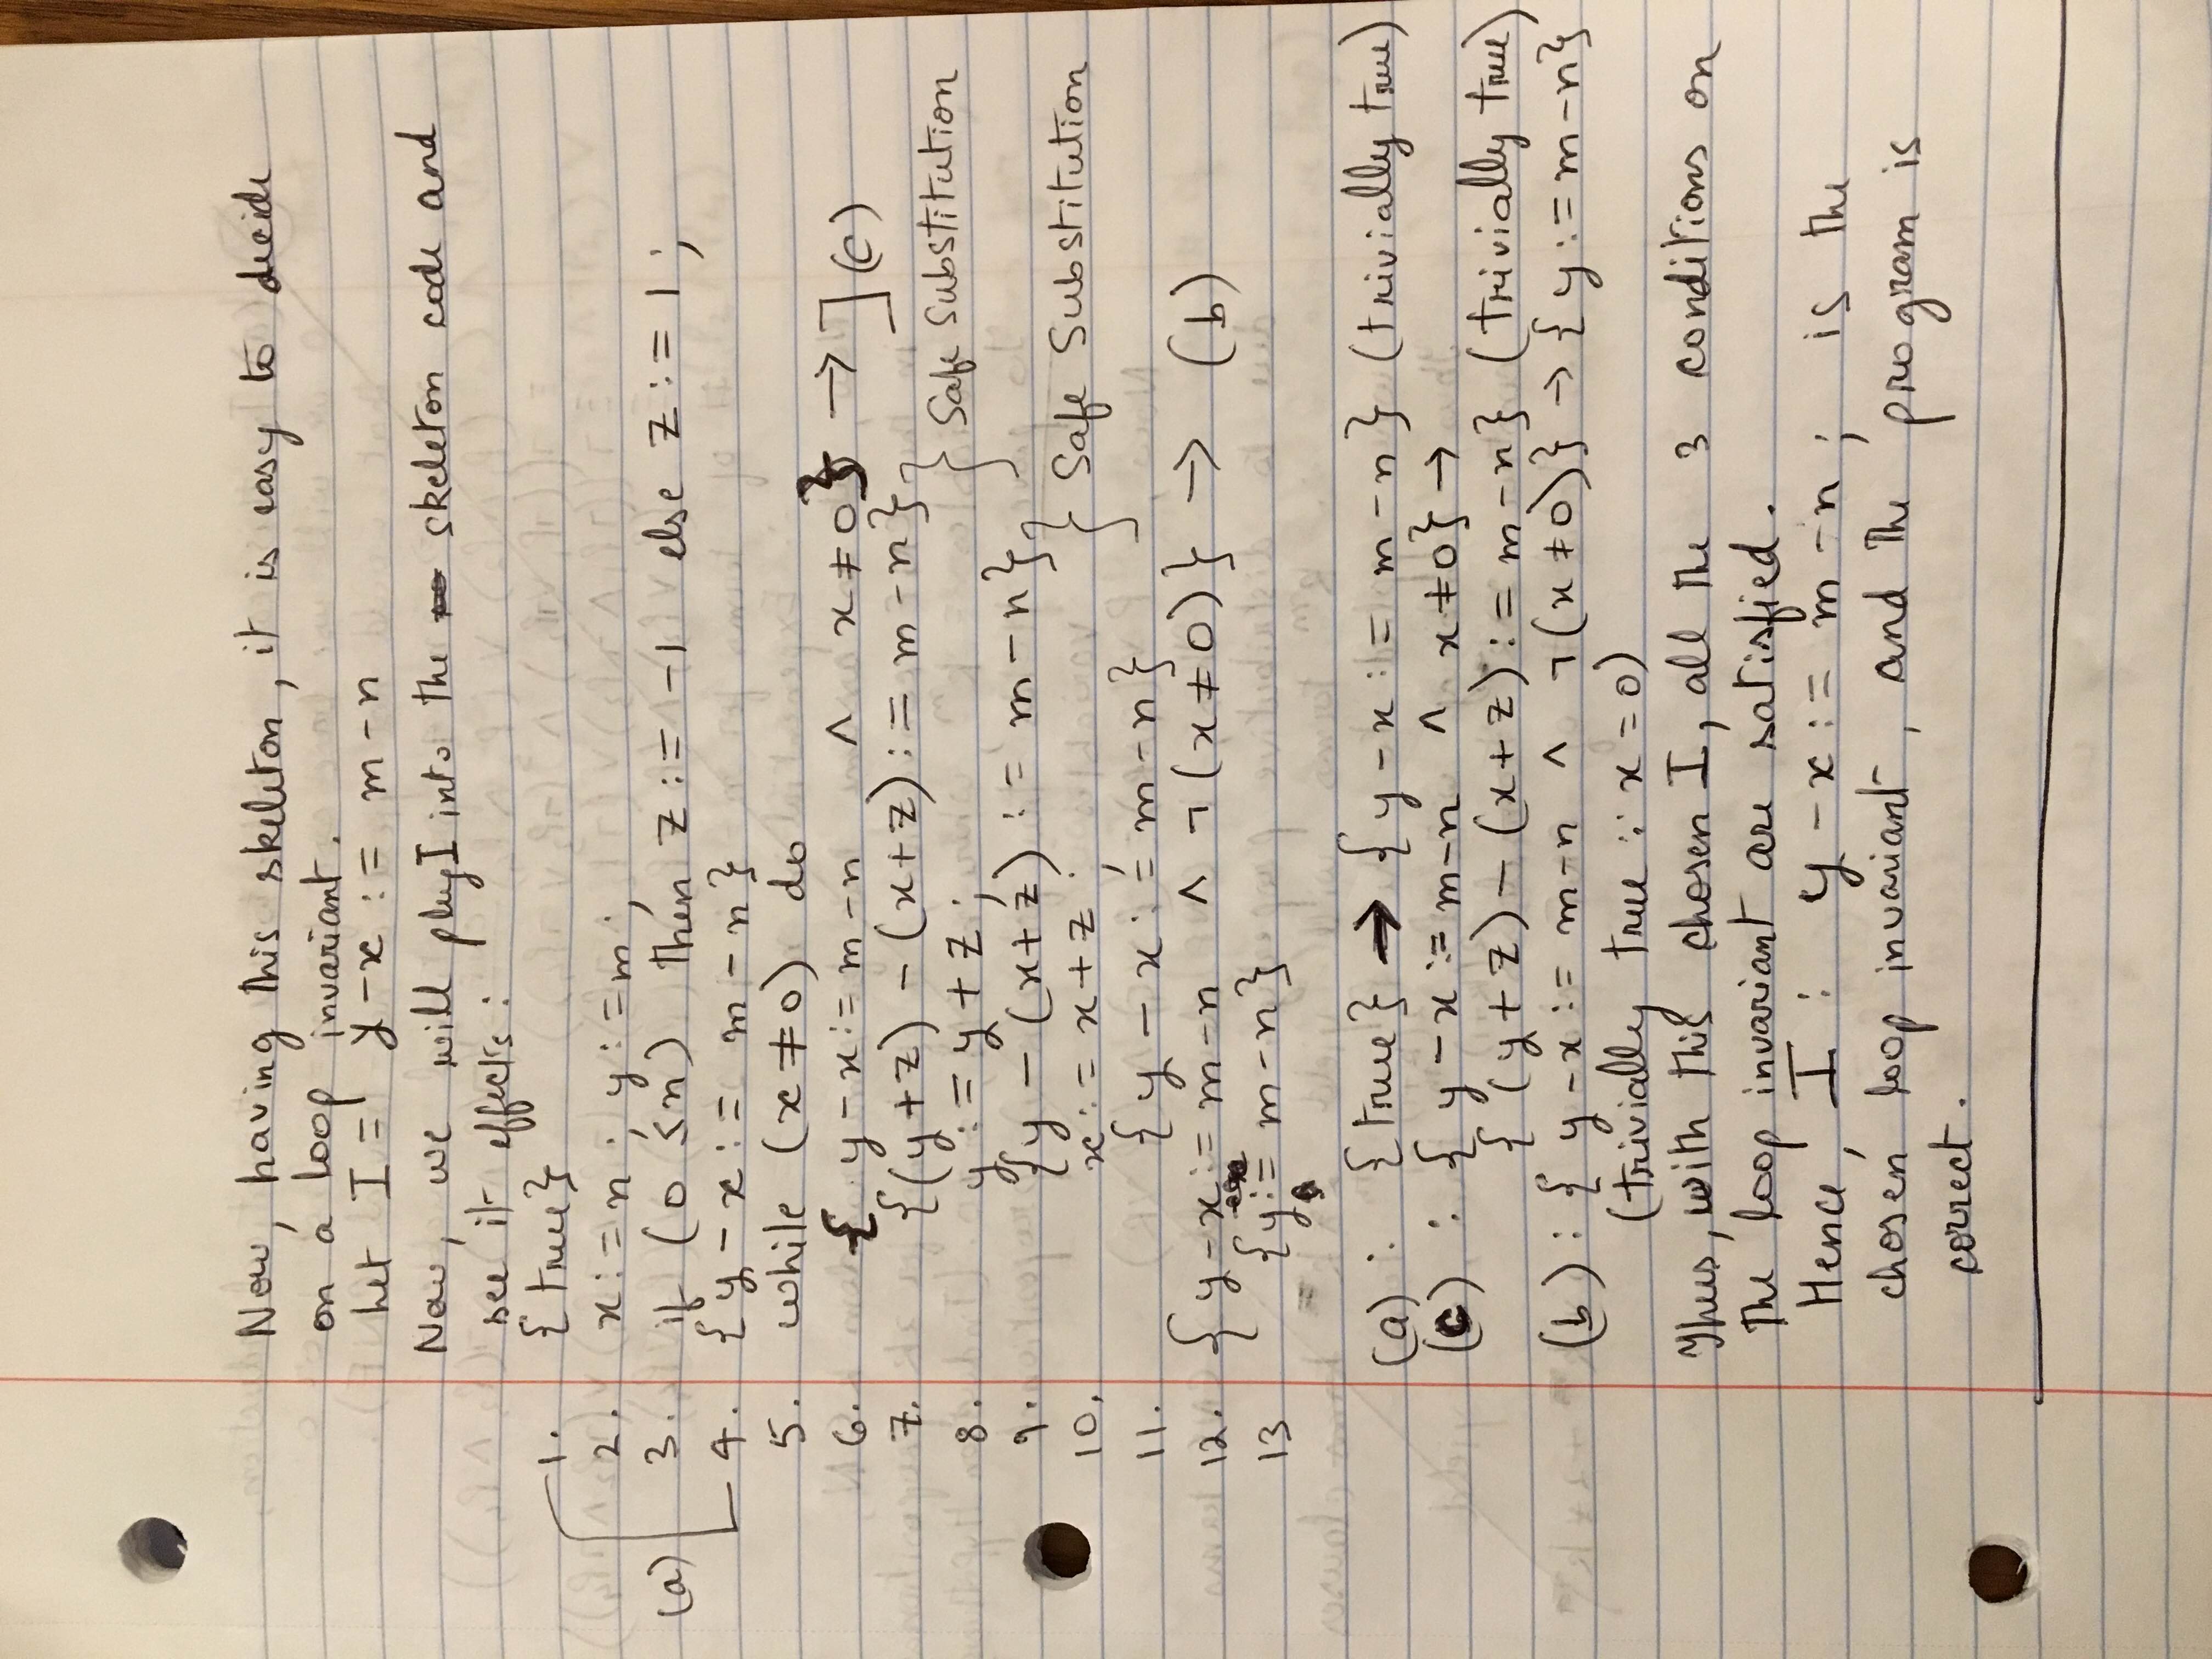 Now, having this skeleton, it is easy to decide
on a loop invariant.
Let I = y-x := m-n
Now, we will plug I into the skeleton code and
see it effects:
1. {true}
2. x:=n; y:=m;
(a) 3. if (0 ≤ n) then z := -1 else z := 1;
4. {y-x := m-n}
5. while (x≠0) do
6. { y-x := m-n ∧ x≠0} → ] (c)
7. {(y+z) - (x+z) := m-n}
8. y := y+z; } Safe Substitution
9. {y - (x+z) := m-n}
10. x := x+z; } Safe Substitution
11. {y - x := m-n}
12. {y-x := m-n ∧ ¬(x≠0)} → (b)
13 {y := m-n}
(a) : {true} → {y-x := m-n} (trivially true)
(c) : { y-x := m-n ∧ x≠0} →
{ (y+z) - (x+z) := m-n} (trivially true)
(b) : { y-x := m-n ∧ ¬(x≠0)} → {y := m-n}
(trivially true ∵ x=0)
Thus, with this chosen I, all the 3 conditions on
the loop invariant are satisfied.
Hence, I : y-x := m-n; is the
chosen loop invariant, and the program is
correct.